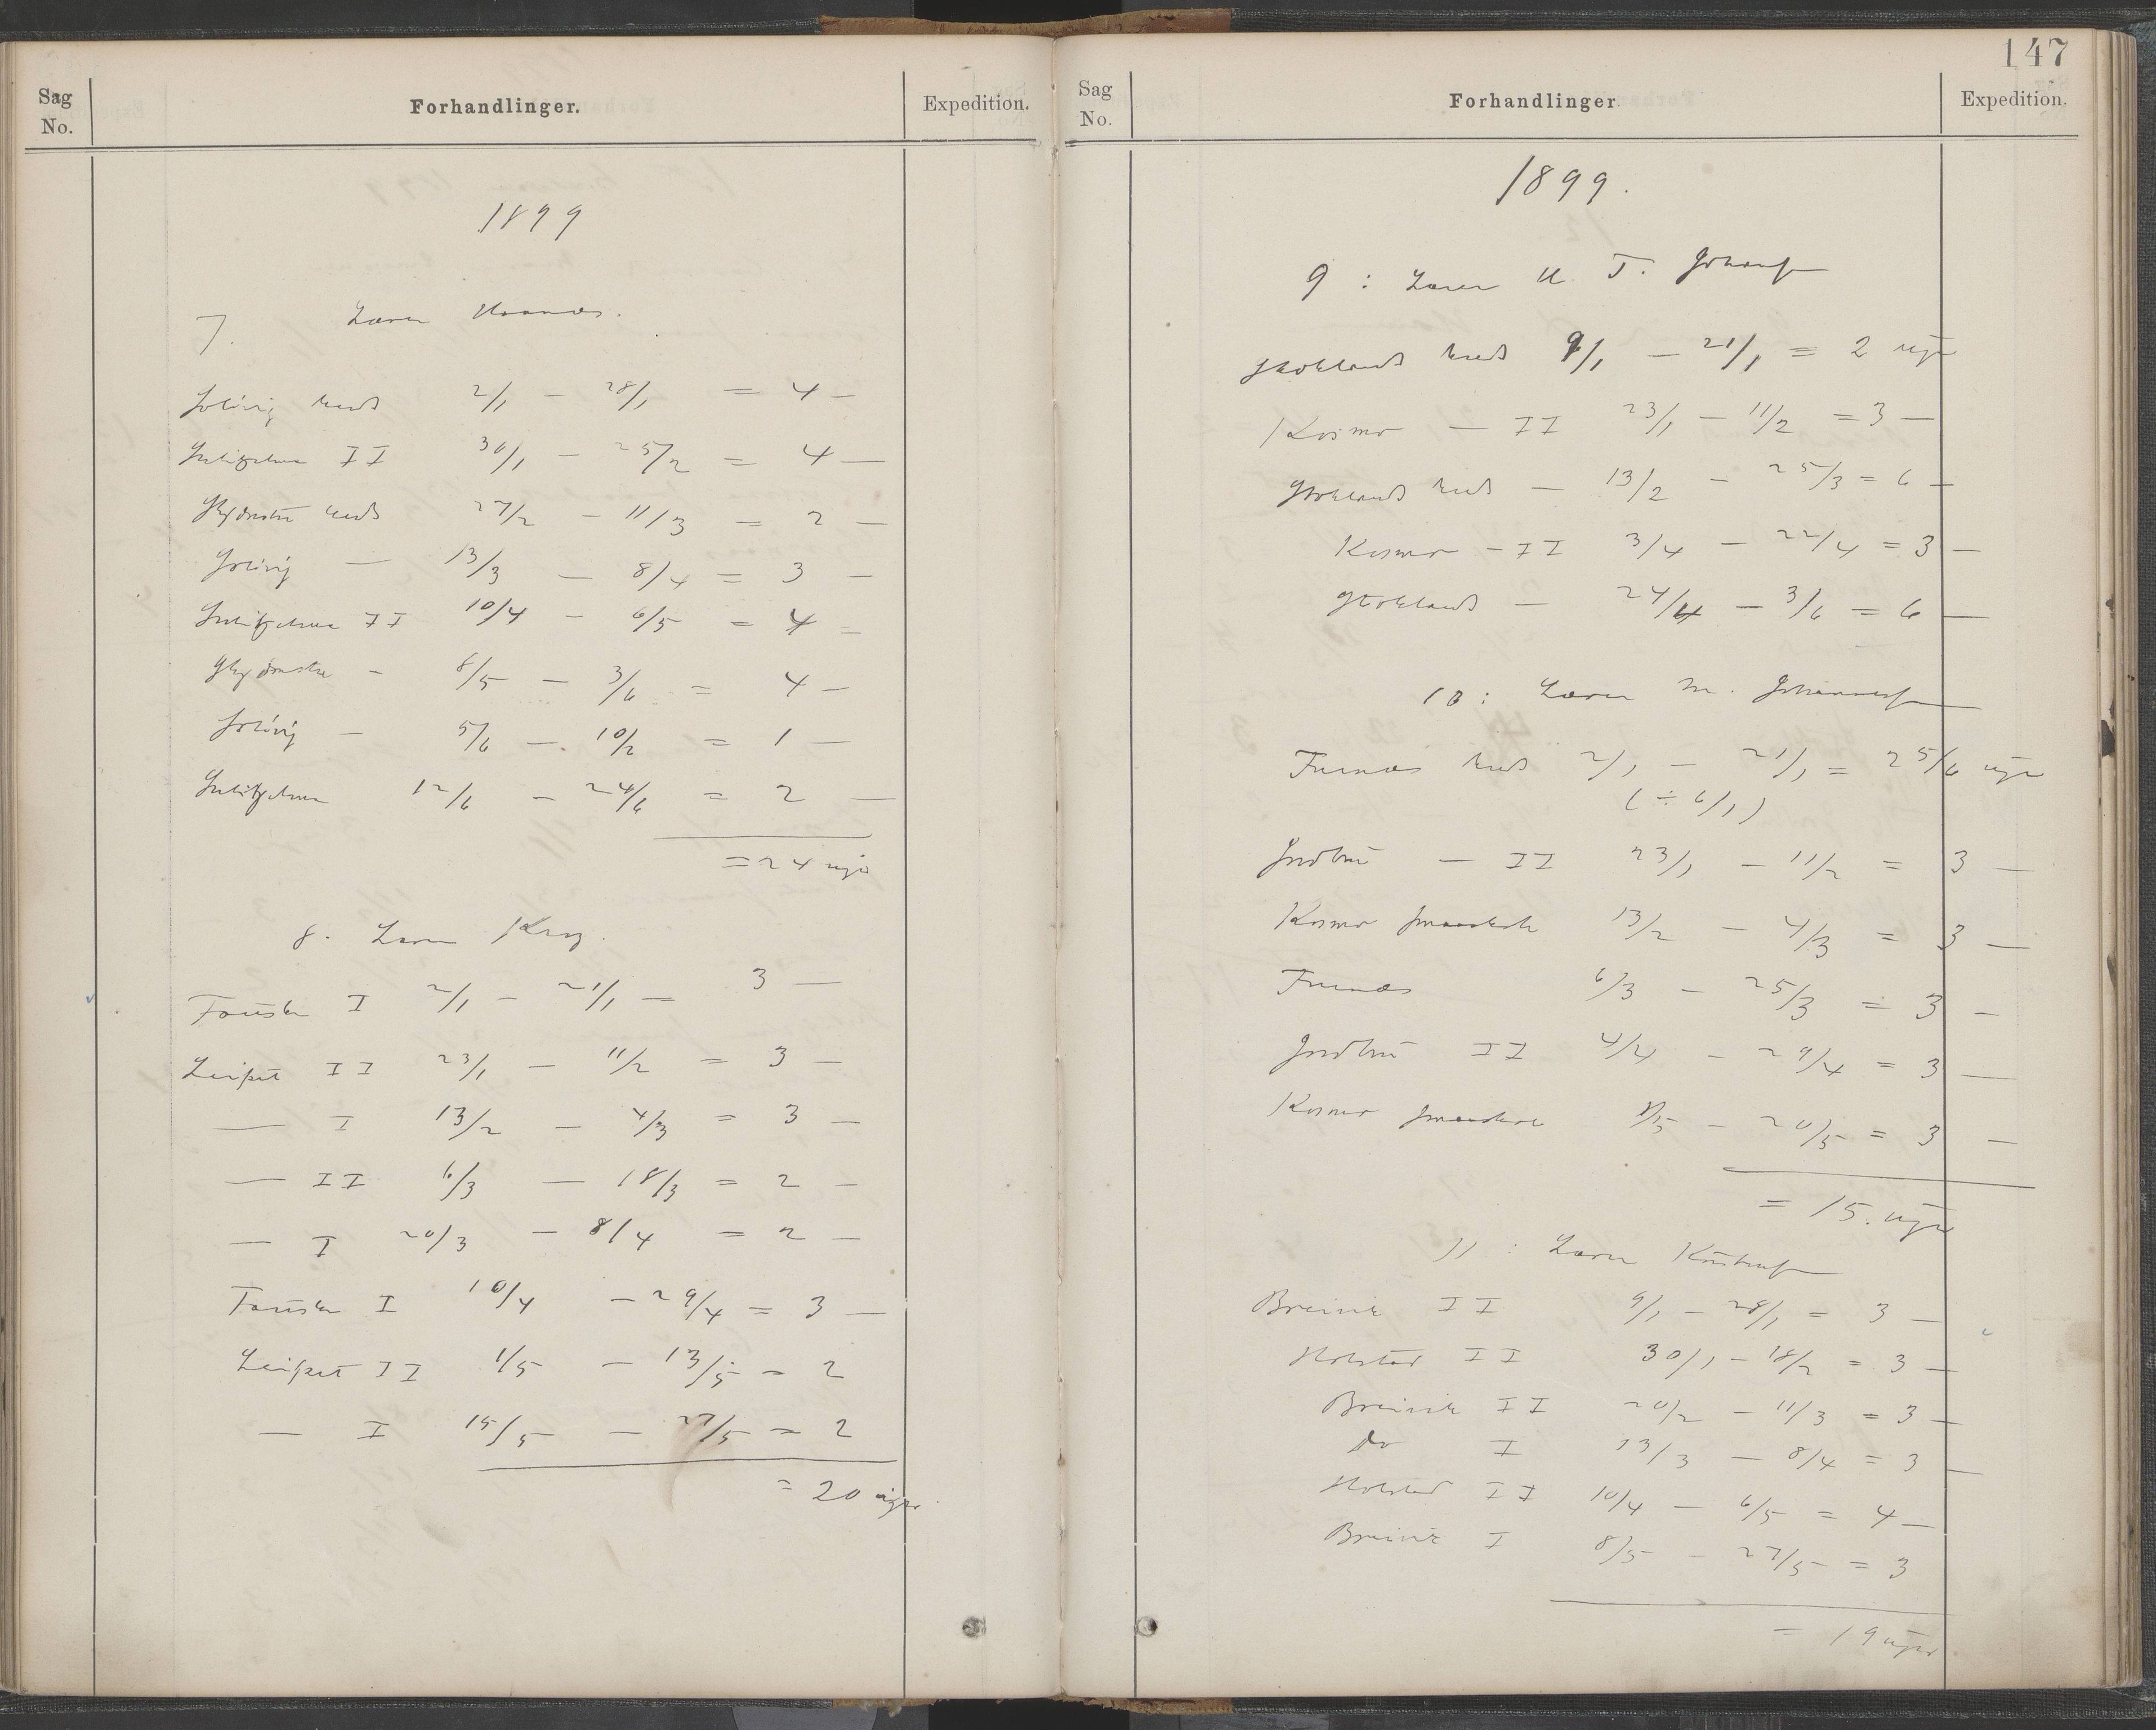 Sag
No.
Forhandlinger.
Expedition.
1899
7. Lærer Haanæs.
Solvig kreds 2/1 – 28/1 = 4 –
Sulitjelma II 30/1 – 25/2 = 4 –
Skjönstå kreds 27/2 – 11/3 = 2 –
Solvig – 13/3 – 8/4 = 3 –
Sulitjelma II 10/4 – 6/5 = 4 –
Skjönstå – 8/5 – 3/6 = 4 –
Solvig – 5/6 – 10/6 = 1 –
Sulitjelma 12/6 – 24/6 = 2 –
= 24 uger
8. Lærer Krog.
Fauske I 2/1 – 21/1 = 3 –
Leifset II 23/1 – 11/2 = 3 –
– I 13/2 – 4/3 = 3 –
– II 6/3 – 18/3 = 2 –
– I 20/3 – 8/4 = 2 –
Fauske I 10/4 – 29/4 = 3 –
Leifset II 1/5 – 13/5 = 2
– I 15/5 – 27/5 = 2
= 20 uger
147
Sag
No.
Forhandlinger
Expedition.
1899.
9 : Lærer T. Johansen
Stokland kreds 9/1 – 21/1 = 2 uger
Kosmo – II 23/1 – 11/2 = 3 –
Stokland kreds – 13/2 – 25/3 = 6 –
Kosmo – II 3/4 – 22/4 = 3 –
Stokland – 24/4 – 3/6 = 6 –
10 : Lærer M. Johannesen
Furnæs kreds 2/1 – 21/1 = 2 5/6 uger
(÷ 6/1)
– II 23/1 – 11/2 = 3 –
Kosmo småskole 13/2 – 4/3 = 3 –
Furnæs 6/3 – 25/3 = 3 –
II 4/4 – 29/4 = 3 –
Kosmo småskole 1/5 – 20/5 = 3 –
= 15. uger
11 : Lærer Kristensen
Breivik II 9/1 – 28/1 = 3 –
Holstad II 30/1 – 18/2 = 3 –
Breivik II 20/2 – 11/3 = 3 –
Do I 13/3 – 8/4 = 3 –
Holstad II 10/4 – 6/5 = 4 –
Breivik I 8/5 – 27/5 = 3
= 19 uger